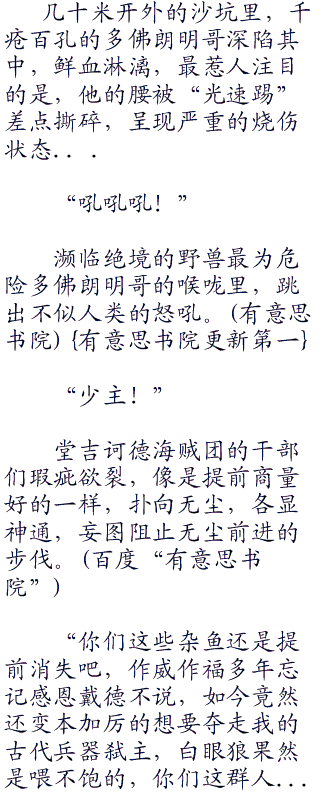 几十米开外的沙坑里，千
疮百孔的多佛朗明哥深陷其
中，鲜血淋漓，最惹人注目
的是，他的腰被“光速踢”
差点撕碎，呈现严重的烧伤
状态...
“吼吼吼！”
濒临绝境的野兽最为危
险多佛朗明哥的喉咙里，跳
出不似人类的怒吼。(有意思
书院) {有意思书院更新第一}
“少主！”
堂吉诃德海贼团的干部
们瑕疵欲裂，像是提前商量
好的一样，扑向无尘，各显
神通，妄图阻止无尘前进的
步伐。(百度“有意思书
院”)
“你们这些杂鱼还是提
前消失吧，作威作福多年忘
记感恩戴德不说，如今竟然
还变本加厉的想要夺走我的
古代兵器弑主，白眼狼果然
是喂不饱的，你们这群人...